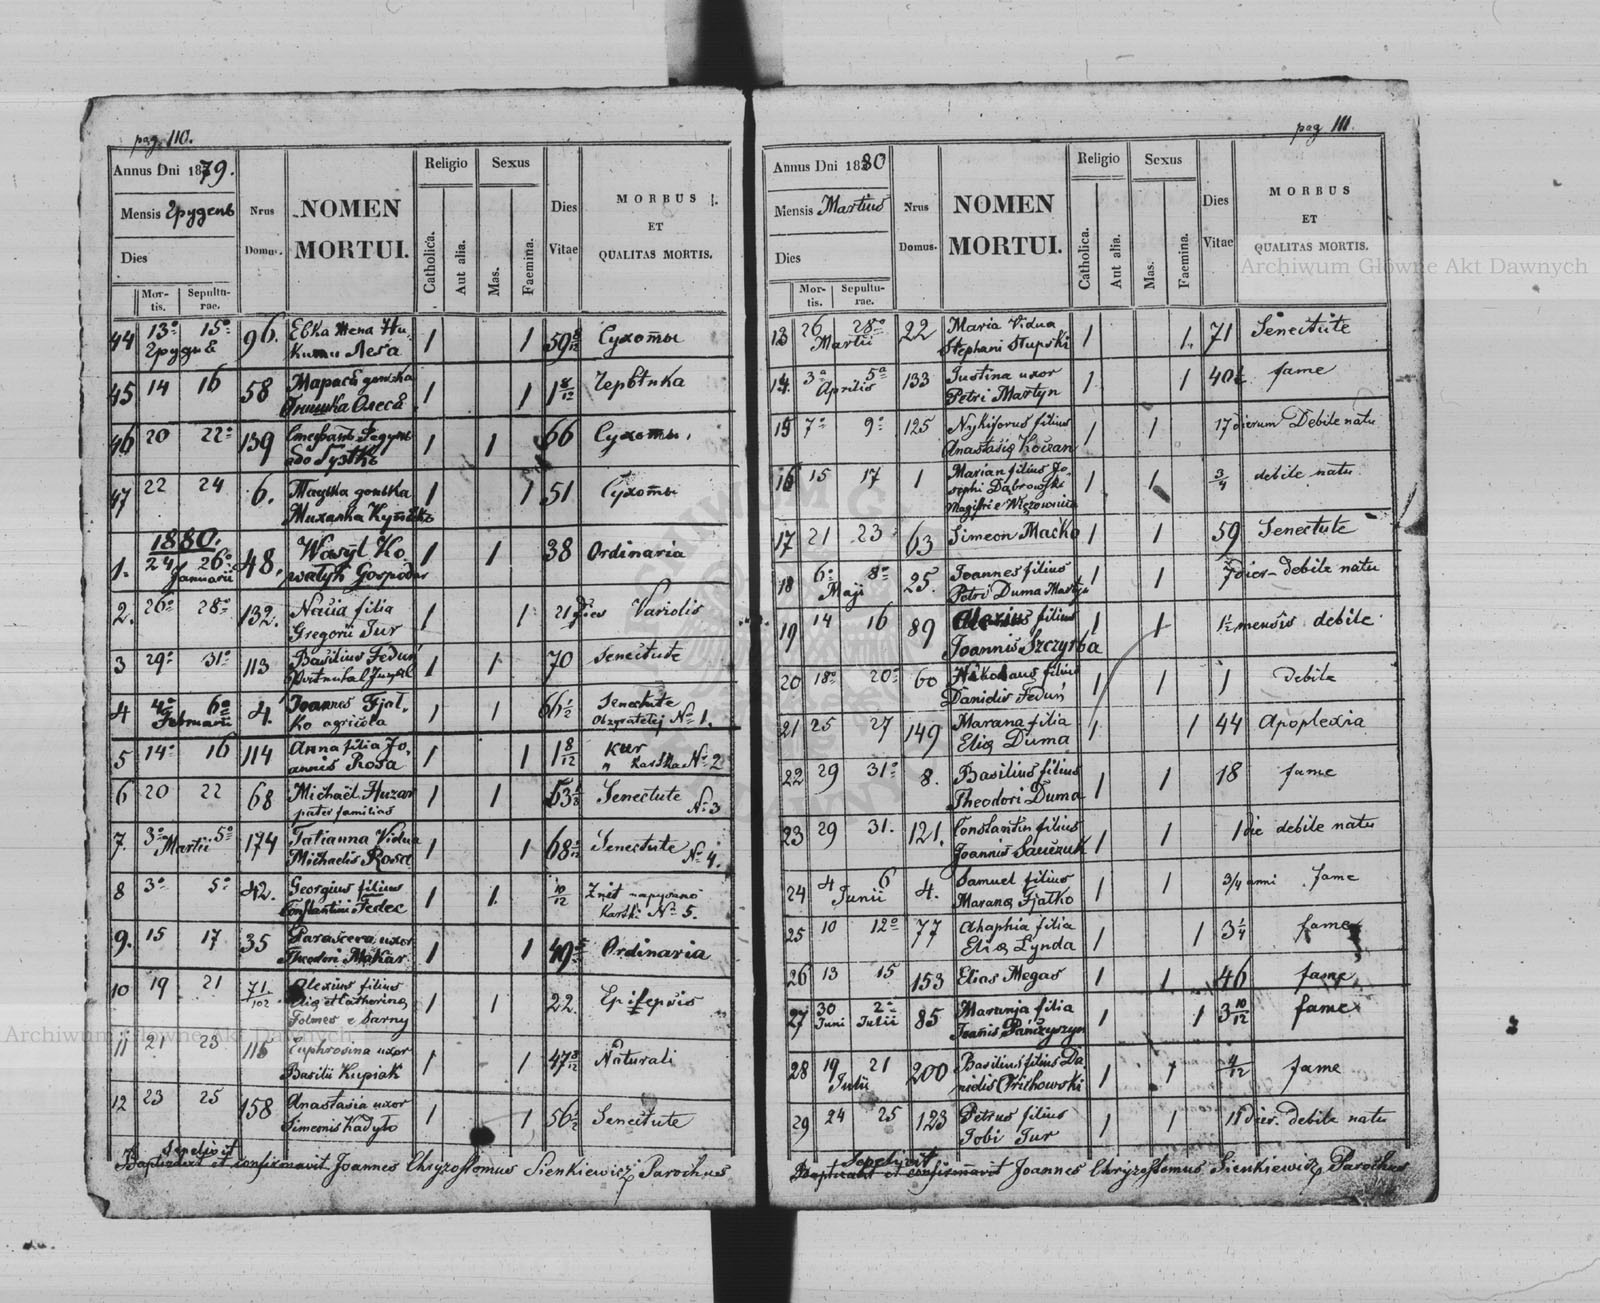 pag. 110.
Annus Dni 1879.
Mensis Грудень
Dies
Mortis.
Sepulturae.
Nrus Domus.
NOMEN MORTUI.
Religio
Catholica.
Aut alia.
Sexus
Mas.
Faemina.
Dies Vitae
MORBUS
ET
QUALITAS MORTIS.
44 13º 15º 96. Евка жена Ни- 1 1 59 Сухоты
Грудня киты Леса
45 14 16 58 Мapacя 1 1 1 8/12 Червѣнка
Олеся
46 20 22º 139 Стефанъ 1 1 66 Сухоты
47 22 24 6. 1 1 51 Сухоты
Михаила
1880.
1. 24 26º 48. Wasyl Ko- 1 1 38 Ordinaria
Januarii walyk Gospodar
2. 26º 28º 132. Nacia filia 1 1 21 dies Variolis
Gregorii Tur
3 29º 31º 113 Basilius Feduń 1 1 70 Senectute
4 4º 6º 4. Joannes Fjal- 1 1 66 1/2 Senectute
Februarii ko agricola Nº 1.
5 14º 16 114 Anna filia Jo- 1 1 1 8/12 kur
annis Rosa kartka Nº 2
6 20 22 68 Michaël Huzar 1 1 63 Senectute
pater familias Nº 3
7. 3º 5º 174 Tatianna Vidua 1 1 68 Senectute
Martii Michaelis Rosa Nº 4.
8 3º 5º 42. Georgius filius 1 1 10/12
Constantini Fedec kartki Nº 5.
9. 15 17 35 Parasceva uxor 1 1 49 Ordinaria
Theodori Makar
10 19 21 71/102 Alexius filius 1 1 22. Epilepsis
Eliæ et Catharinæ
Tolmes e Sarny
11 21 23 116 Euphrosina uxor 1 1 47 Naturali
Basilii Kupiak
12 23 25 158 Anastasia uxor 1 1 56 1/2 Senectute
Simeonis Kadylo
Sepelivit
Baptisavit et confirmavit Joannes Chryzostomus Sienkiewicz Parochus
pag 111.
Annus Dni 1880
Mensis Martius
Dies
Mortis.
Sepulturae.
Nrus Domus.
NOMEN MORTUI.
Religio
Catholica.
Aut alia.
Sexus
Mas.
Faemina.
Dies Vitae
MORBUS
ET
QUALITAS MORTIS.
Archiwum Główne Akt Dawnych
13 26 28º 22 Maria Vidua 1 1. 71 Senectute
Martii Stephani Stupski
14. 3ª 5ª 133 Justina uxor 1 1 40 fame
Aprilis Petri Martyn
15 7º 9º 125 Nykiforus filius 1 1 17 dierum Debile natu
Anastasiæ Koczan
16 15 17 1 Marian filius Jo- 1 1 3/4 debile natu
sephi Dąbrowski
Magistri e Więzownica
17 21 23 63 Simeon Maćko 1 1 59 Senectute
18 6º 8º 25. Joannes filius 1 1 7 dier- debile natu
Maji Petri Duma Martyn
19 14 16 89 Alexius filius 1 1 1/2 mensis debile
Joannis Szczyrba
20 18º 20º 60 Nikolaus filius 1 1 1 Debile
Danidis Feduń
21 25 27 149 Marana filia 1 1 44 Apoplexia
Eliæ Duma
22 29 31º 8. Basilius filius 1 1 18 fame
Theodori Duma
23 29 31. 121. Constantin filius 1 1 1 die debile natu
Joannis Sawczuk
24 4 6 4. Samuel filius 1 1 3/4 anni fame
Junii Marana Fjalko
25 10 12º 77 Ahaphia filia 1 1 3 1/4 fame
Eliæ Lynda
26 13 15 153 Elias Megas 1 1 46 fame
27 30 2º 85 Maranja filia 1 1 3 10/12 fame
Juni Julii Joanis Pańczyszyn
28 19 21 200 Basilius filius Da- 1 1 4/12 fame
Julii nidis Orichowski
29 24 25 123 Petrus filius 1 1 11 dier. debile natu
Jobi Tur
Sepelivit
Baptisavit et confirmavit Joannes Chryzostomus Sienkiewicz Parochus
Archiwum Główne Akt Dawnych